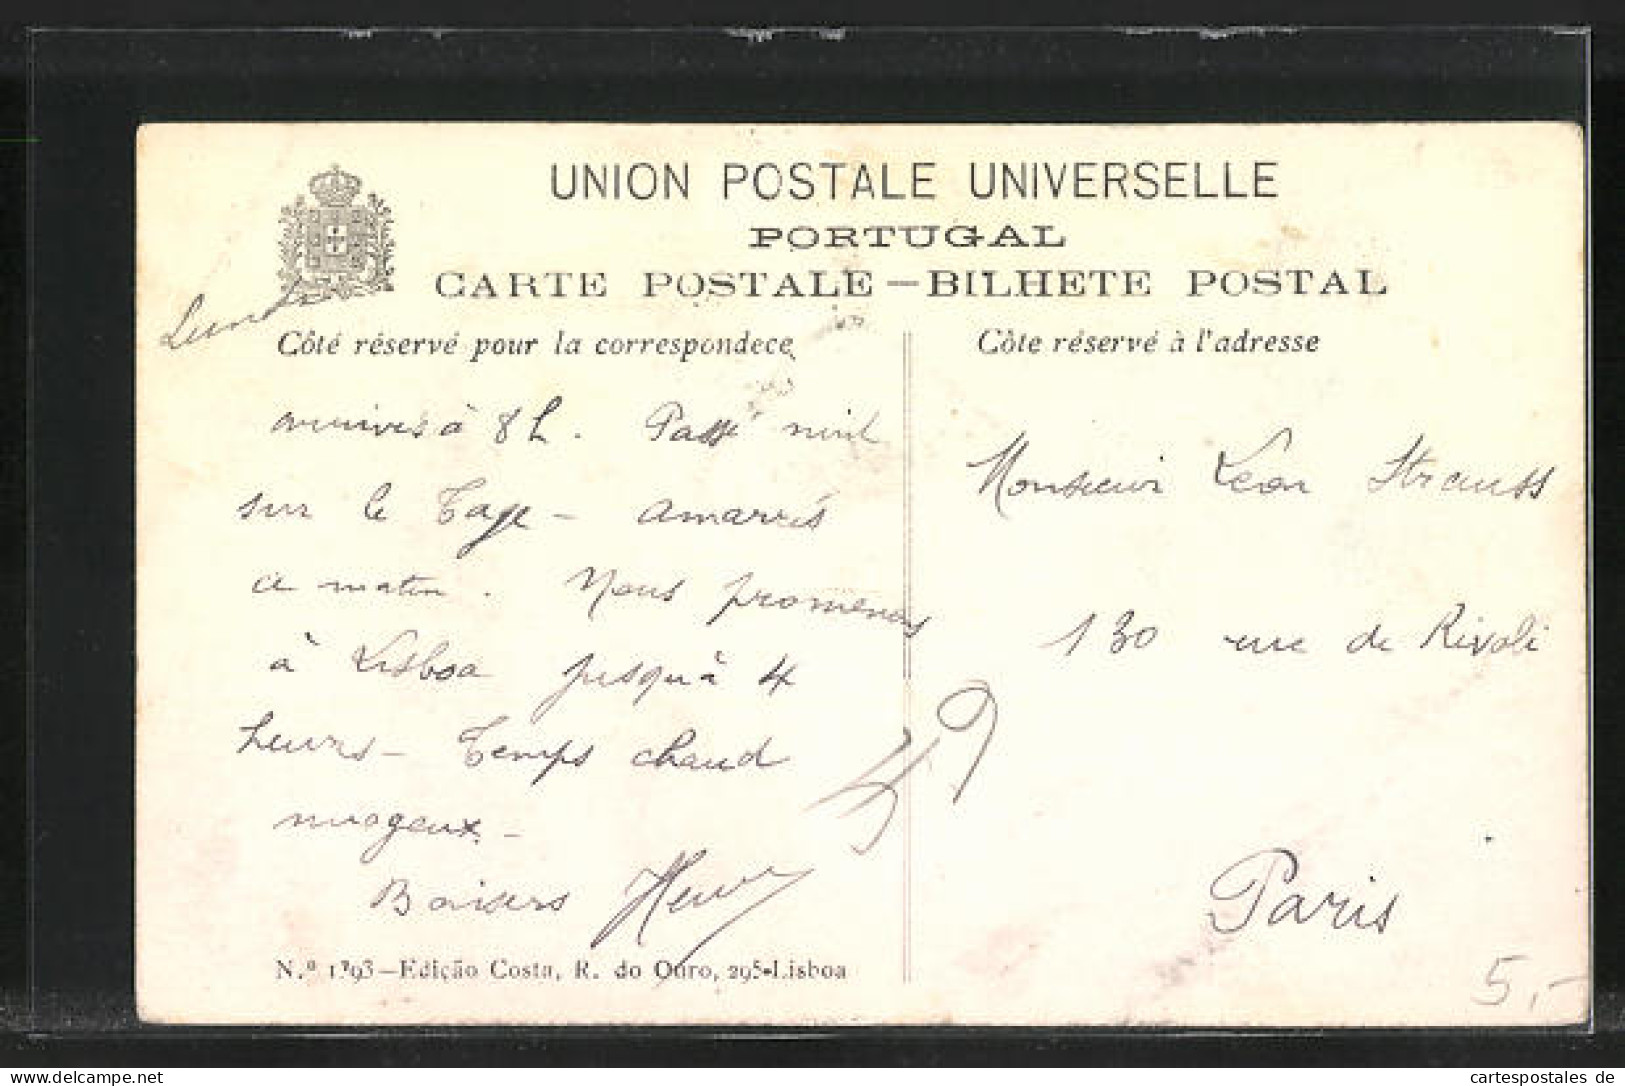 UNION POSTALE UNIVERSELLE
PORTUGAL
CARTE POSTALE — BILHETE POSTAL
Côté réservé pour la correspondece
Côte réservé à l'adresse
Lundi
arrivés à 8 h. Passé nuit
sur le Tage - amarrés
ce matin. Nous promenons
à Lisboa jusqu'à 4
heures - Temps chaud
nuageux -
Baisers Henri
Monsieur Léon Strauss
130 rue de Rivoli
Paris
5,-
N.º 1793—Edição Costa, R. do Ouro, 295-Lisboa
www.cartespostales.de
cartespostales de